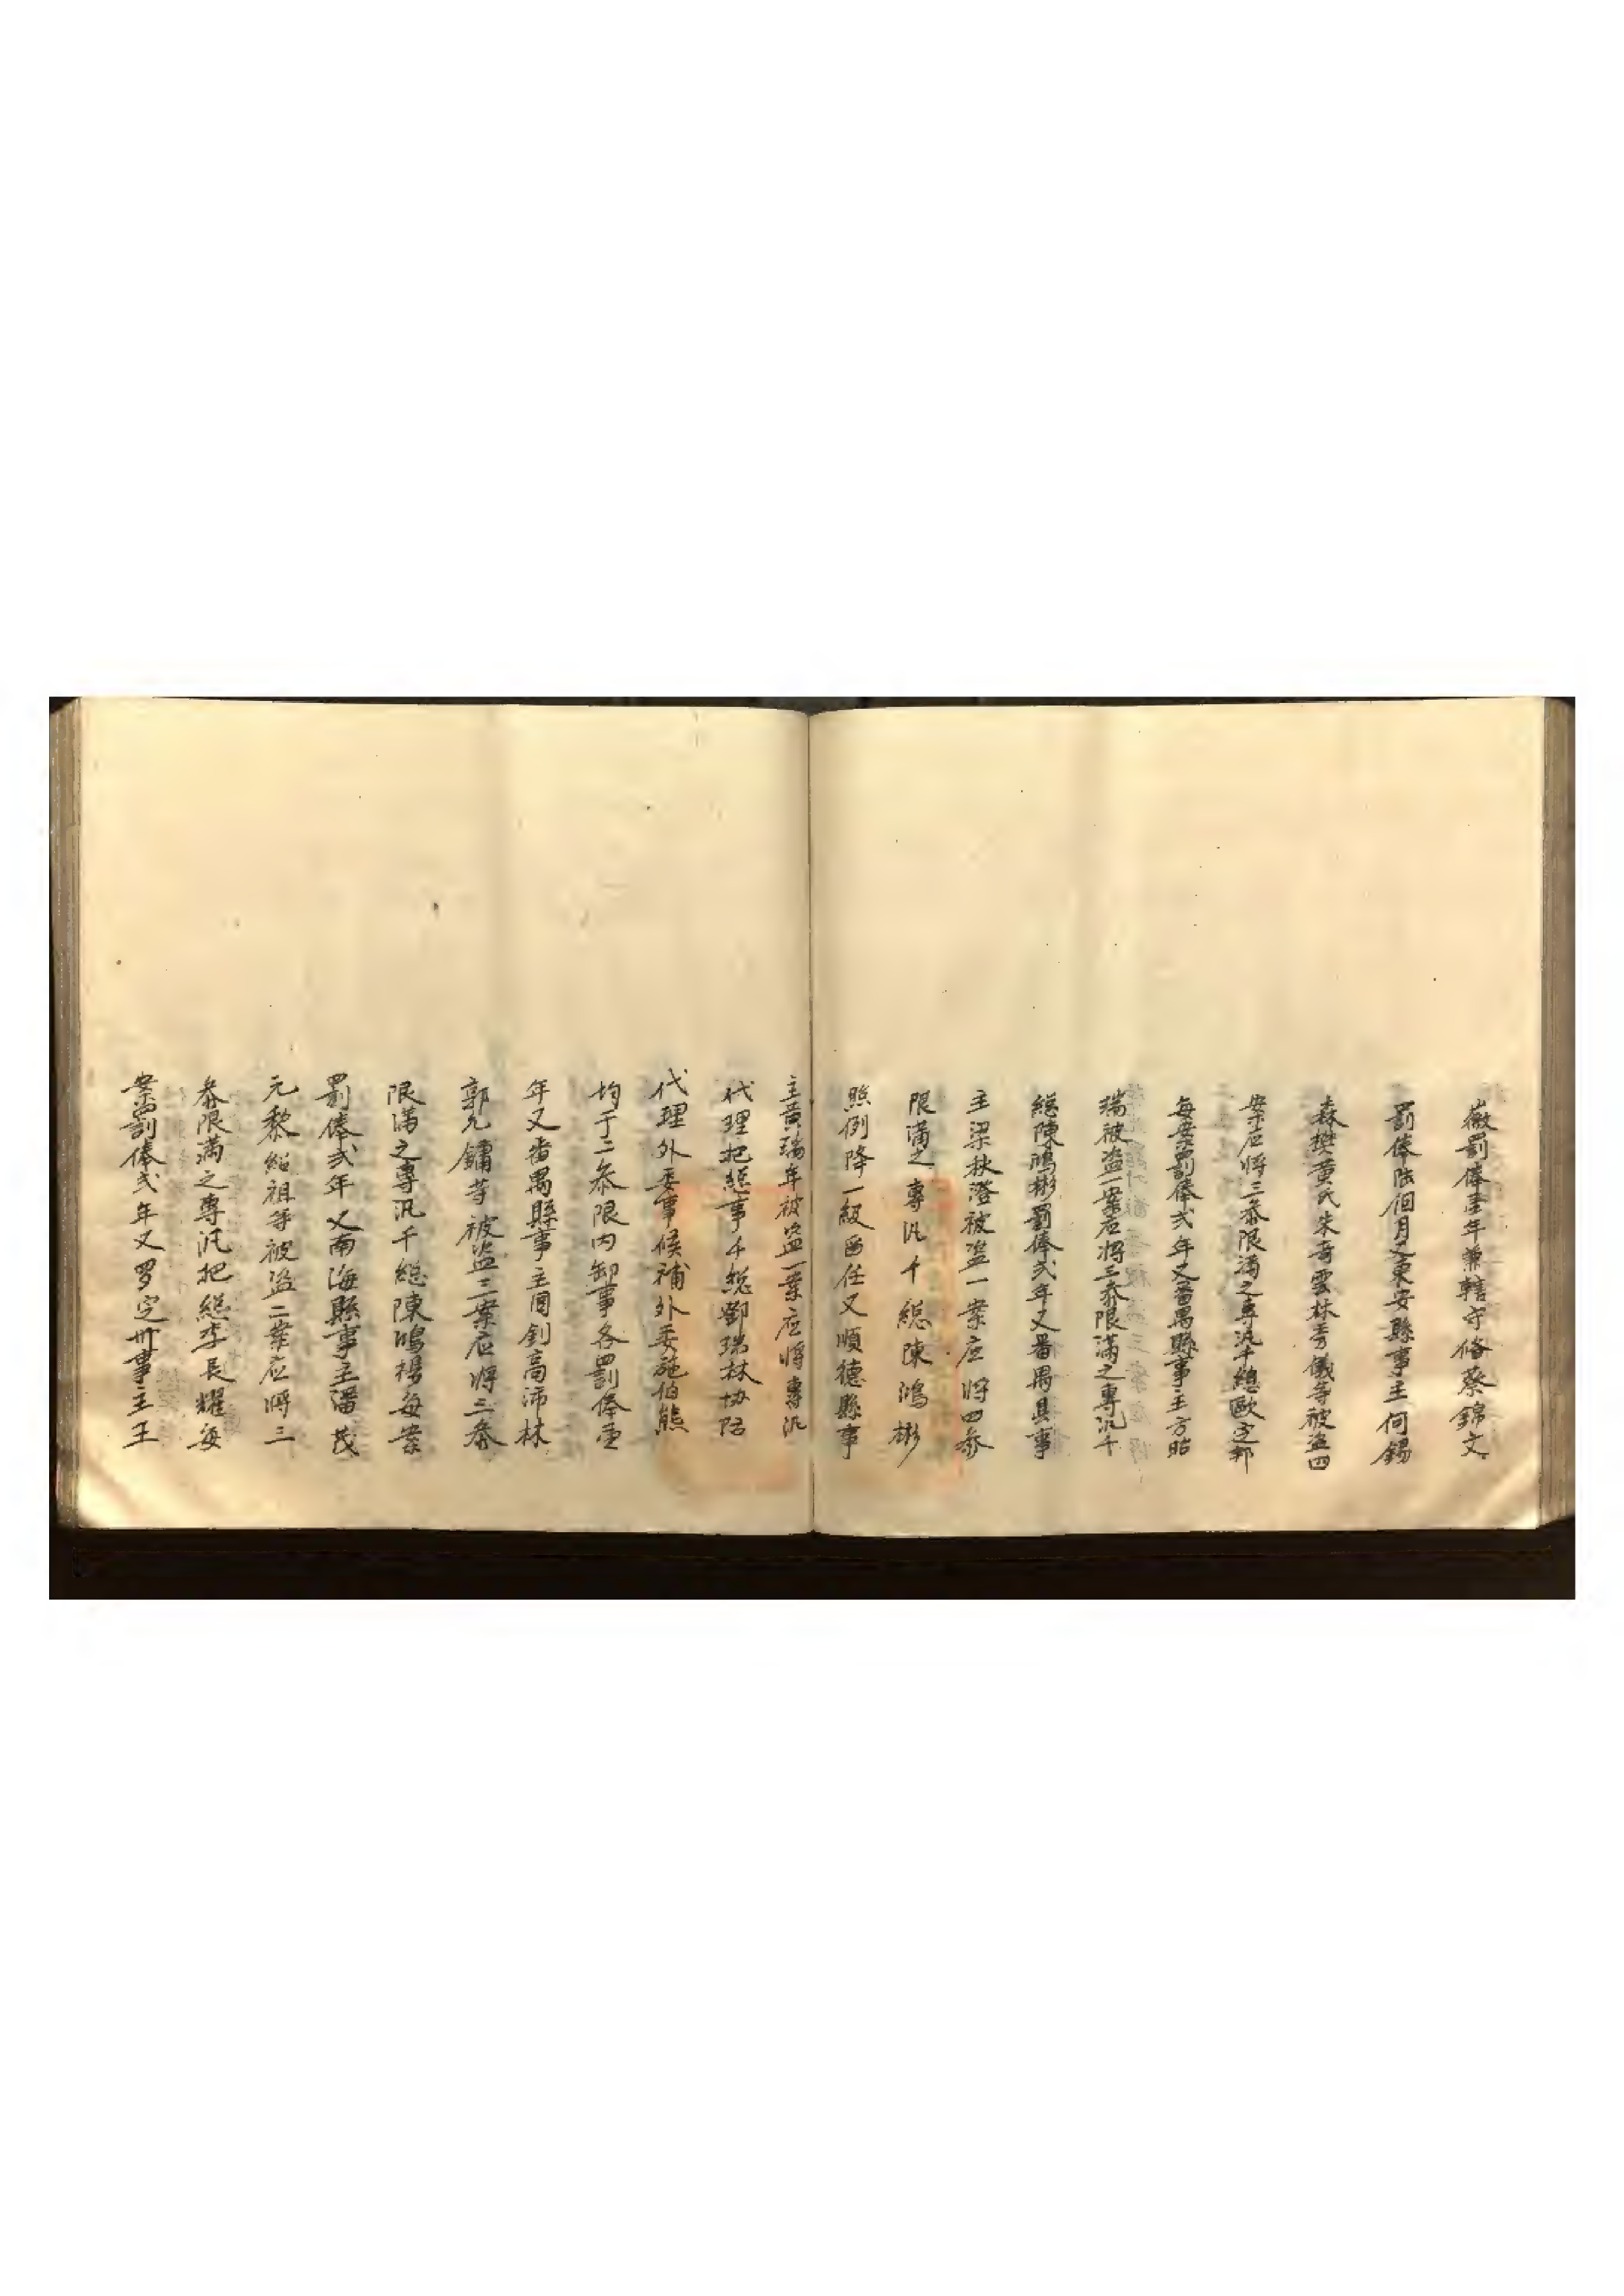 徽罰俸壹年兼轄守俻蔡錦文
罰俸陸個月又東安縣事主何錫
森樊黄氏朱奇雲林秀儀等被盗四
案应将三叅限满之專汛千總歐定邦
每案罰俸弍年又畨禺縣事主方昭
瑞被盗一案应将三叅限满之專汛千
總陳鴻彬罰俸弍年又畨禺县事
主梁秋澄被盗一案应将四叅
限满之專汛千總陳鴻彬
照例降一級留任又順德縣事
主黄瑞年被盗一案应将專汛
代理把總事千總鄧瑞林协防
代理外委事候補外委施伯熊
均于二叅限内卸事各罰俸壹
年又畨禺縣事主周釗高沛林
郭九鏞等被盗三案应将三叅
限满之專汛千總陳鴻揚每案
罰俸弍年又南海縣事主潘茂
元黎紹祖等被盗二案应将三
叅限满之專汛把總李長耀每
案罰俸弍年又罗定州事主王